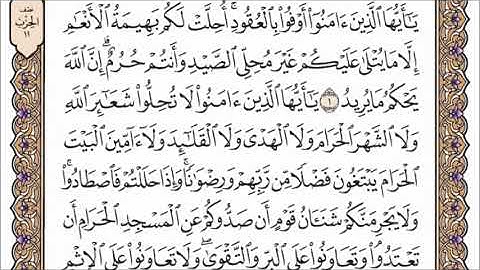 نصف
الحزب
١١
يَٰٓأَيُّهَا ٱلَّذِينَ ءَامَنُوٓا۟ أَوْفُوا۟ بِٱلْعُقُودِ ۚ أُحِلَّتْ لَكُم بَهِيمَةُ ٱلْأَنْعَٰمِ
إِلَّا مَا يُتْلَىٰ عَلَيْكُمْ غَيْرَ مُحِلِّى ٱلصَّيْدِ وَأَنتُمْ حُرُمٌ ۗ إِنَّ ٱللَّهَ
يَحْكُمُ مَا يُرِيدُ ١ يَٰٓأَيُّهَا ٱلَّذِينَ ءَامَنُوا۟ لَا تُحِلُّوا۟ شَعَٰٓئِرَ ٱللَّهِ
وَلَا ٱلشَّهْرَ ٱلْحَرَامَ وَلَا ٱلْهَدْىَ وَلَا ٱلْقَلَٰٓئِدَ وَلَآ ءَآمِّينَ ٱلْبَيْتَ
ٱلْحَرَامَ يَبْتَغُونَ فَضْلًا مِّن رَّبِّهِمْ وَرِضْوَٰنًا ۚ وَإِذَا حَلَلْتُمْ فَٱصْطَادُوا۟ ۚ
وَلَا يَجْرِمَنَّكُمْ شَنَـَٔانُ قَوْمٍ أَن صَدُّوكُمْ عَنِ ٱلْمَسْجِدِ ٱلْحَرَامِ أَن
تَعْتَدُوا۟ ۘ وَتَعَاوَنُوا۟ عَلَى ٱلْبِرِّ وَٱلتَّقْوَىٰ ۖ وَلَا تَعَاوَنُوا۟ عَلَى ٱلْإِثْمِ